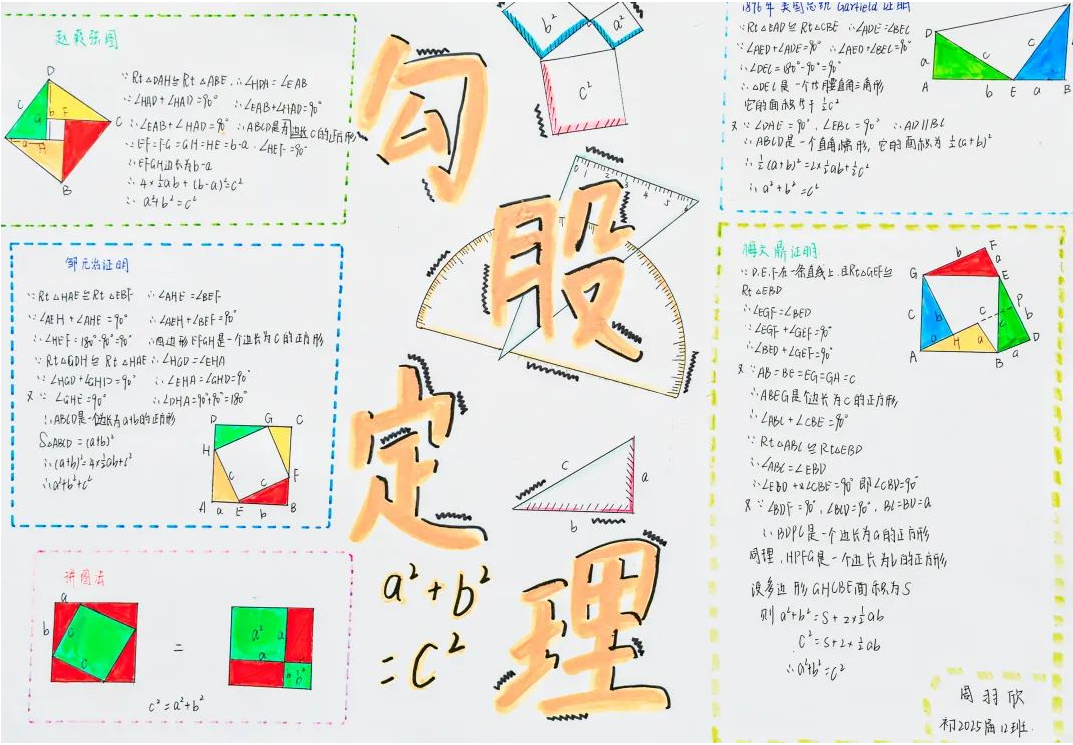 赵爽弦图
∵Rt△DAH≌Rt△ABE ∴∠HDA=∠EAB
∵∠HAD+∠HAD=90° ∴∠EAB+∠HAD=90°
∴∠EAB+∠HAD=90° ∴ABCD是为边长C的正方形
∵EF=FG=GH=HE=b-a ∠HEF=90°
∴EFGH边长为b-a
∴4×½ab+(b-a)²=c²
∴a²+b²=c²
D
C
G
b
F
C
a
H
A
B
邹元治证明
∵Rt△HAE≌Rt△EBF ∴∠AHE=∠BEF
∵∠AEH+∠AHE=90° ∴∠AEH+∠BEF=90°
∴∠HEF=180°-90°=90° ∴四边形EFGH是一个边长为C的正方形
∵Rt△GDH≌Rt△HAE ∴∠HGD=∠EHA
∵∠HGD+∠GHD=90° ∴∠EHA+∠GHD=90°
又∵∠GHE=90° ∴∠DHA=90°+90°=180°
∴ABCD是一个边长为a+b的正方形
S△ABCD=(a+b)²
∴(a+b)²=4×½ab+c²
∴a²+b²+c²
D
G
C
H
F
c
c
A
a
E
b
B
拼图法
a
b
c
c
=
a²
a
a
b
b²
c²=a²+b²
勾
股
定
理
b²
a²
c²
0 1 2 3 4 5 6
c
a
b
a²+b²
=C²
1876年美国总统Garfield证明
∵Rt△EAD≌Rt△CBE ∴∠ADE=∠BEC
∵∠AED+∠ADE=90° ∴∠AED+∠BEC=90°
∴∠DEC=180°-90°=90°
∴△DEC是一个等腰直角三角形
它的面积等于½c²
又∵∠DAE=90°,∠EBC=90° ∴AD∥BC
∴ABCD是一个直角梯形,它的面积为½(a+b)²
∴½(a+b)²=2×½ab+½c²
∴a²+b²=c²
D
a
c
c
b
A
b
E
a
B
梅文鼎证明
∵D.E.F在一条直线上,且Rt△GEF≌
Rt△EBD
∴∠EGF=∠BED
∵∠EGF+∠GEF=90°
∴∠BED+∠GEF=90°
又∵AB=BE=EG=GA=c
∴ABEG是边长为C的正方形
∴∠ABC+∠CBE=90°
∵Rt△ABC≌Rt△EBD
∴∠ABC=∠EBD
∴∠EBD+∠CBE=90°即∠CBD=90°
又∵∠BDF=90°,∠BCD=90°,BC=BD=a
∴BDPC是一个边长为a的正方形
同理,HPFG是一个边长为b的正方形
设多边形GHCBE面积为S
则a²+b²=S+2×½ab
C²=S+2×½ab
∴a²+b²=c²
F
b
a
G
E
C
b
c
P
c
b
a
H
a
D
A
B
a
周羽欣
初2025届12班